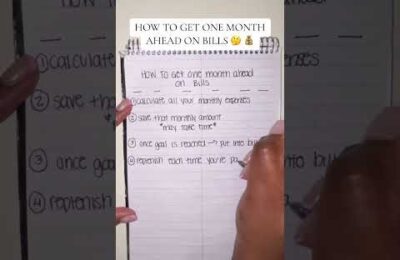 HOW TO GET ONE MONTH
AHEAD ON BILLS 🤔 💰
HOW TO get one month ahead
on Bills
① calculate all your monthly expenses
② save that monthly amount
*may take time*
③ once goal is reached → put into
④ replenish each time you're
① calculate
② save
③ once
④ replenish